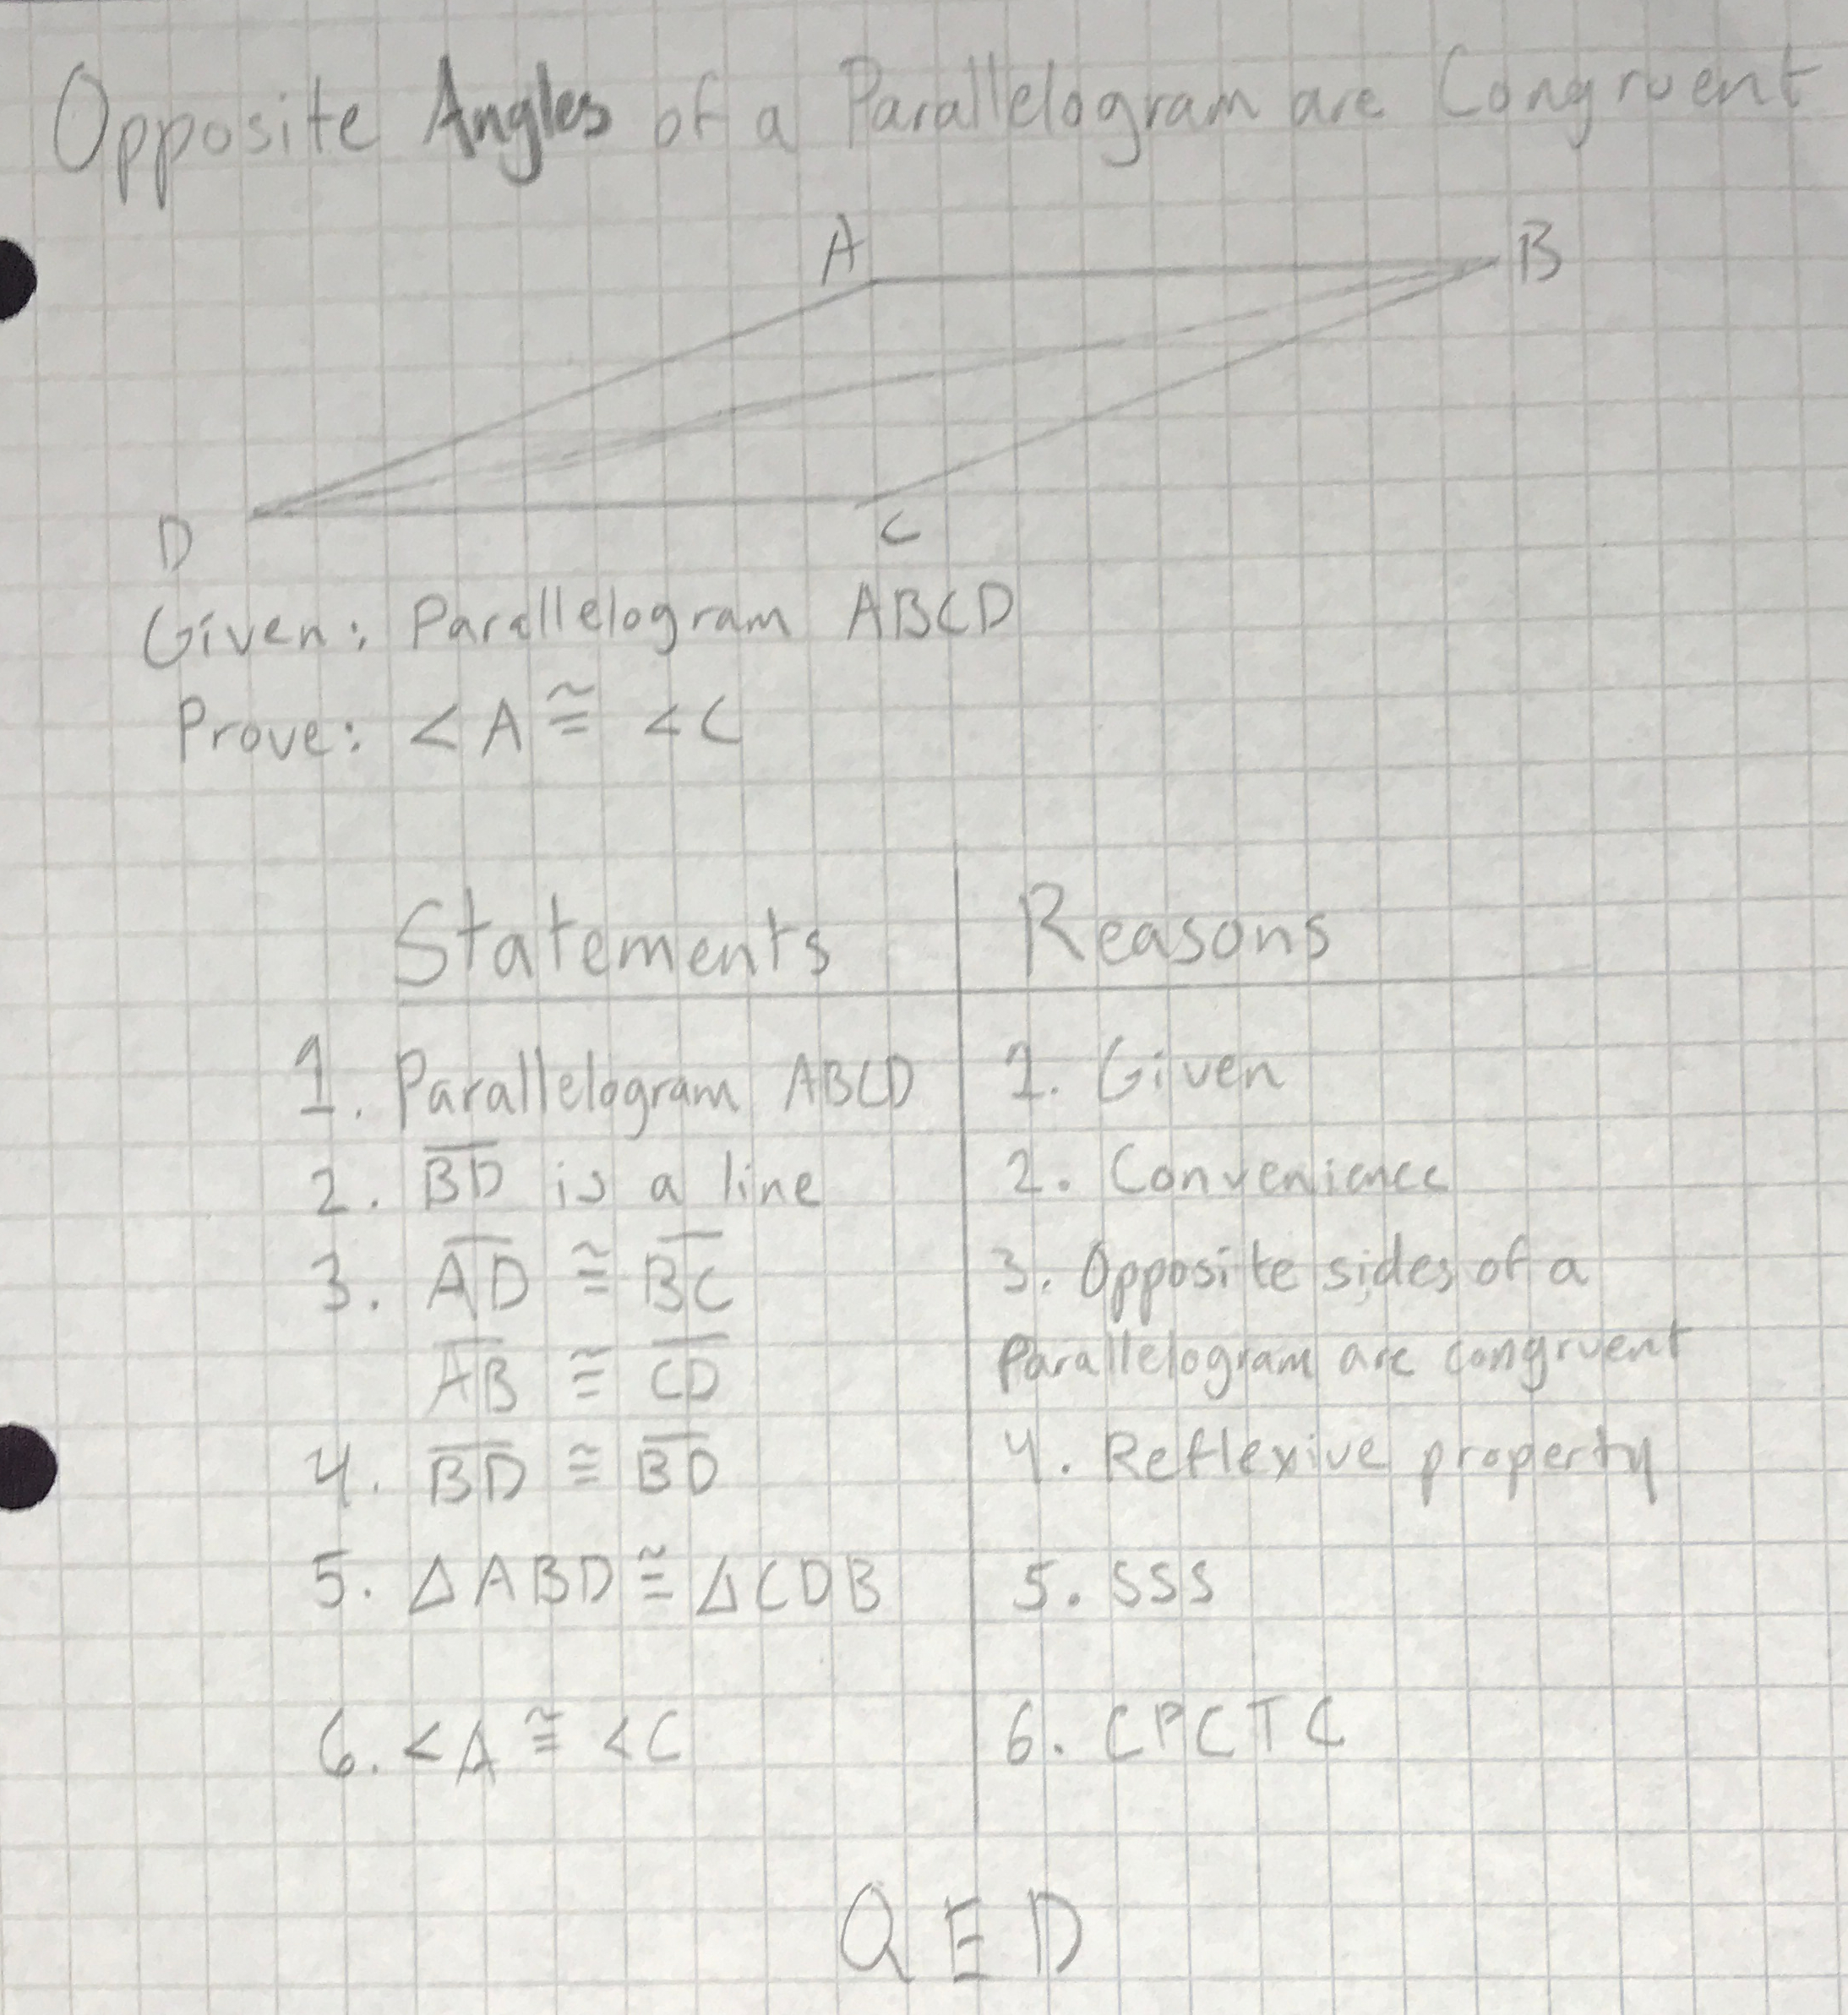 Opposite Angles of a Parallelogram are Congruent
A
B
D
C
Given: Parallelogram ABCD
Prove: <A ≅ <C
Statements
Reasons
1. Parallelogram ABCD
1. Given
2. B̅D̅ is a line
2. Convenience
3. A̅D̅ ≅ B̅C̅
3. Opposite sides of a
A̅B̅ ≅ C̅D̅
Parallelogram are congruent
4. B̅D̅ ≅ B̅D̅
4. Reflexive property
5. △ABD ≅ △CDB
5. SSS
6. <A ≅ <C
6. CPCTC
QED